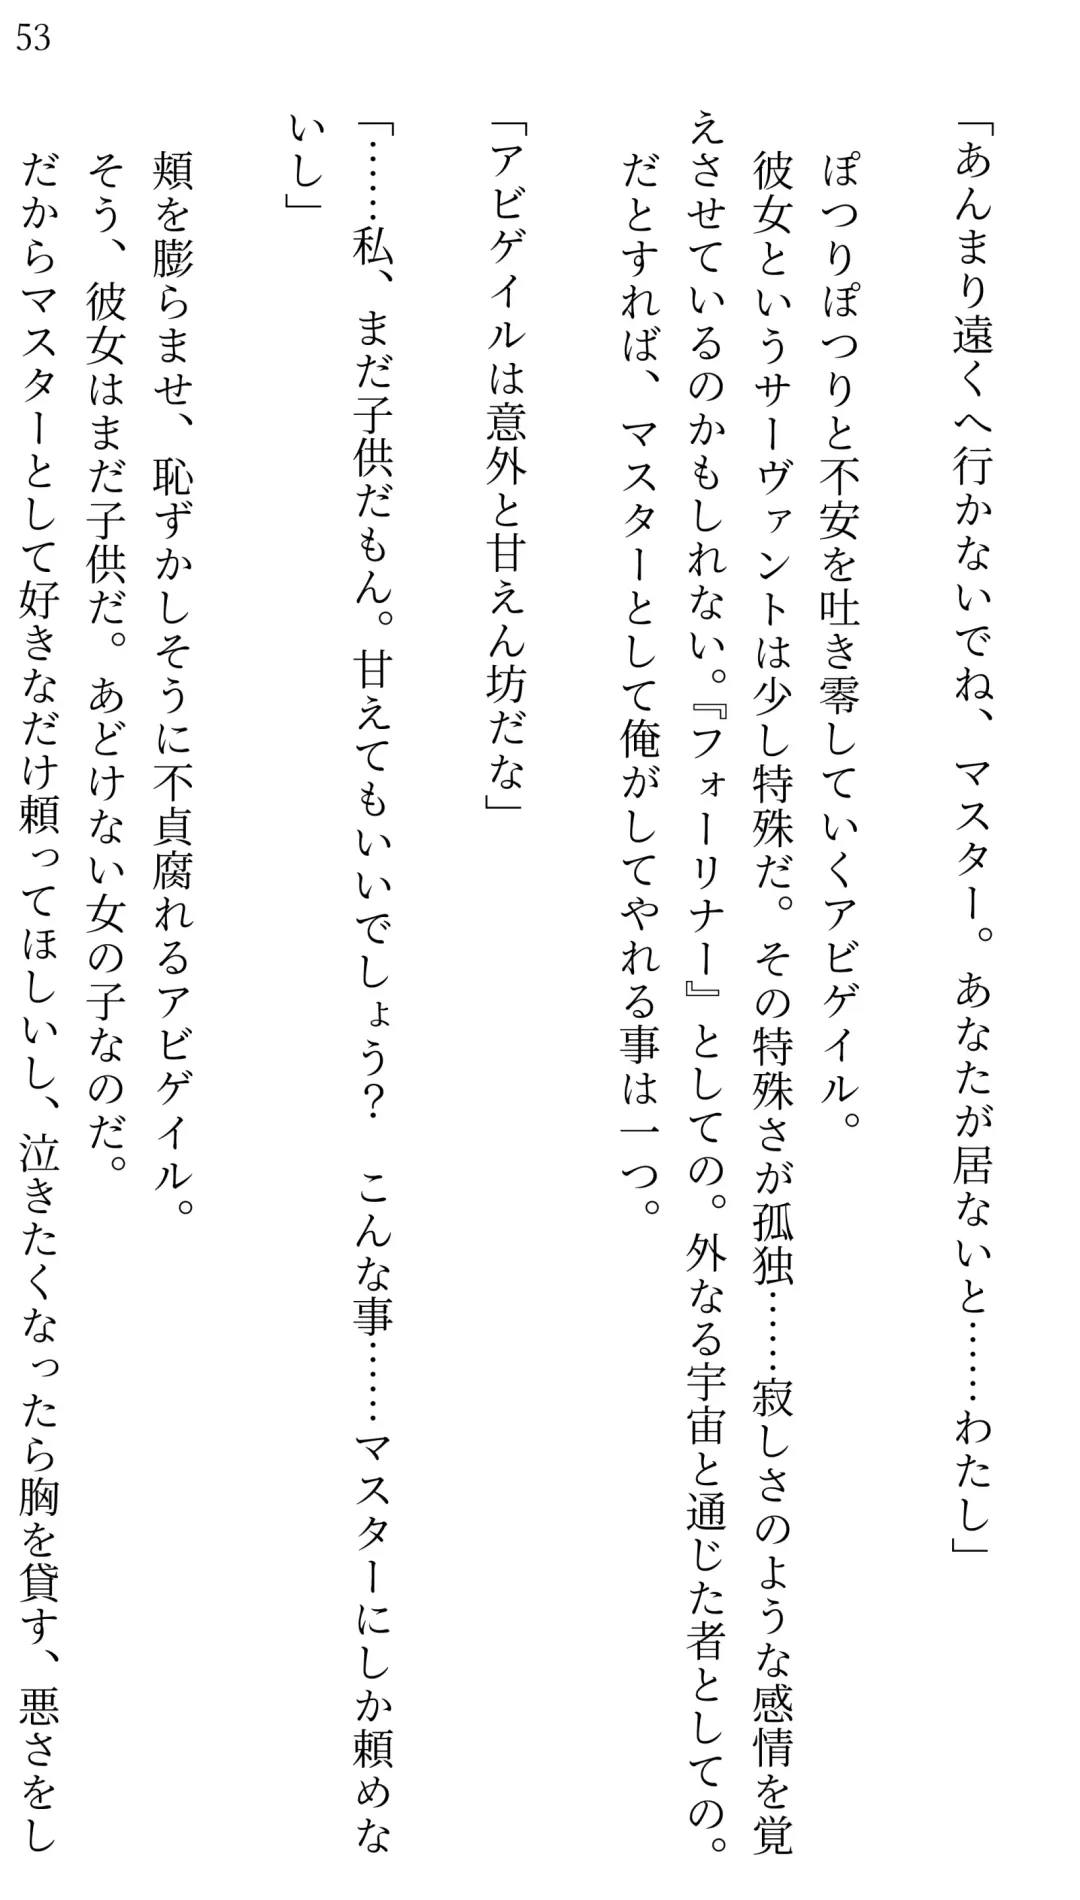 53
「あんまり遠くへ行かないでね、マスター。あなたが居ないと……わたし」
ぽつりぽつりと不安を吐き零していくアビゲイル。
彼女というサーヴァントは少し特殊だ。その特殊さが孤独……寂しさのような感情を覚
えさせているのかもしれない。『フォーリナー』としての。外なる宇宙と通じた者としての。
だとすれば、マスターとして俺がしてやれる事は一つ。
「アビゲイルは意外と甘えん坊だな」
「……私、まだ子供だもん。甘えてもいいでしょう？　こんな事……マスターにしか頼めな
いし」
頬を膨らませ、恥ずかしそうに不貞腐れるアビゲイル。
そう、彼女はまだ子供だ。あどけない女の子なのだ。
だからマスターとして好きなだけ頼ってほしいし、泣きたくなったら胸を貸す、悪さをし